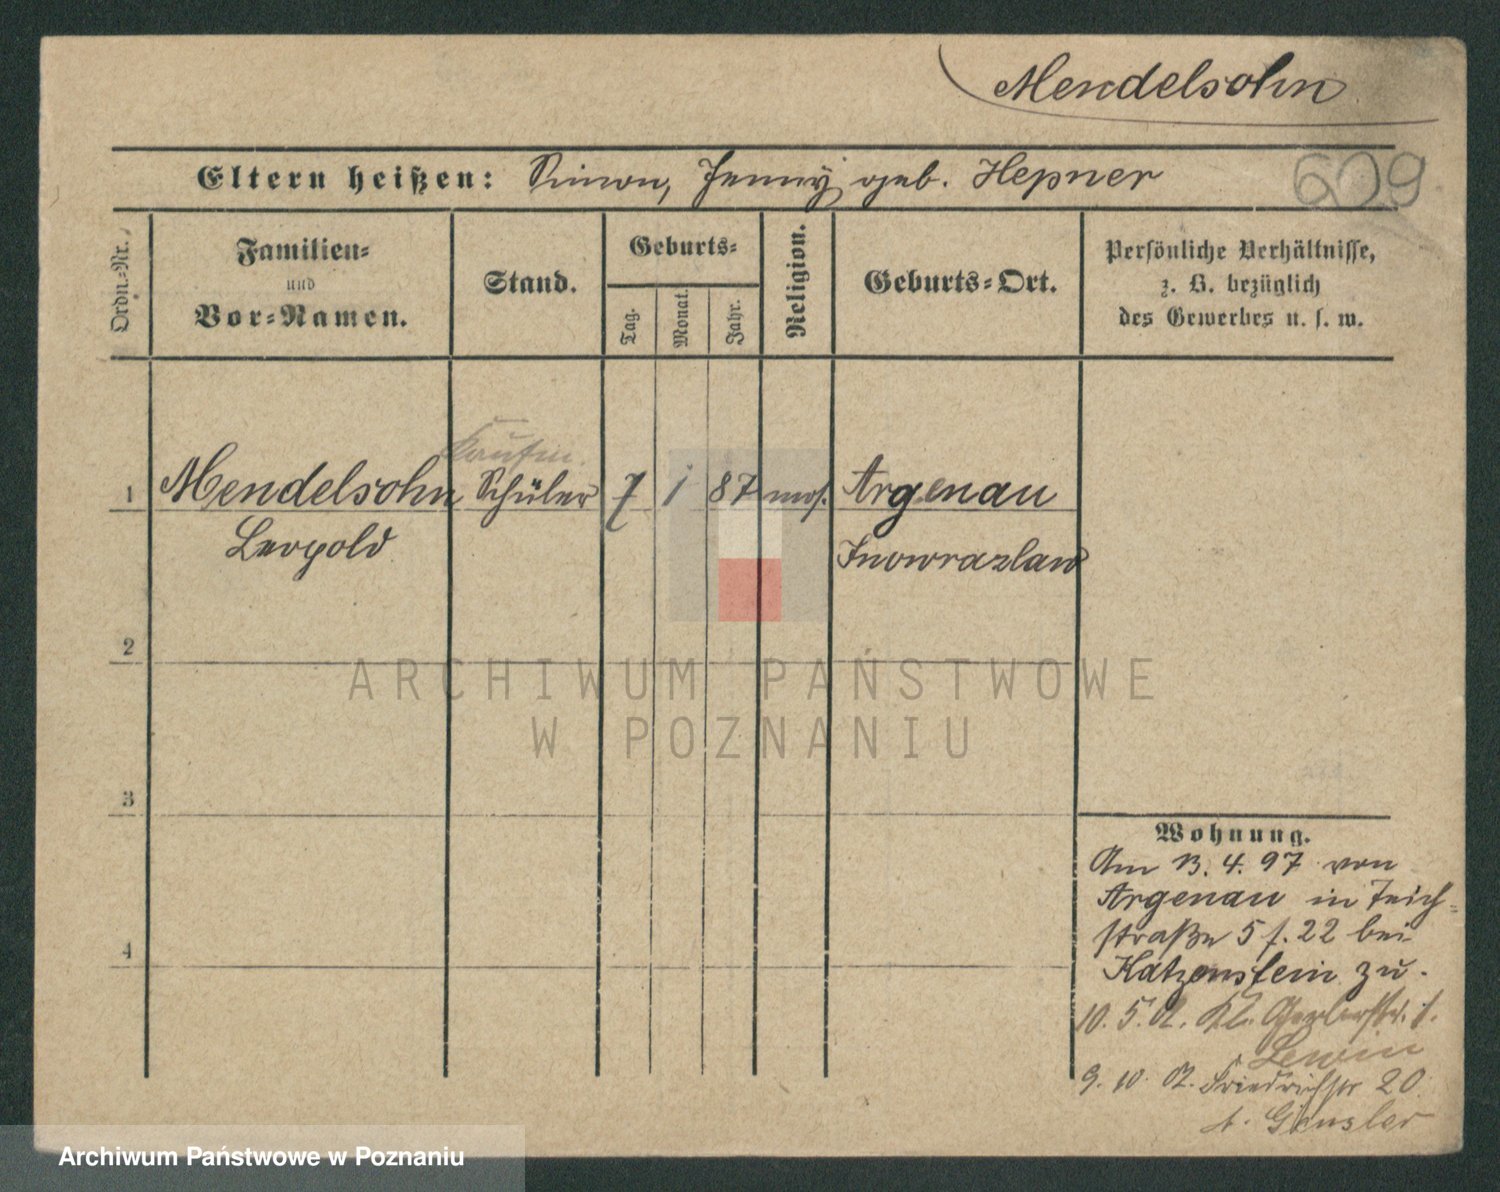 Mendelsohn
Eltern heißen: Simon, Jenny geb. Hepner
609
Ordn.-Nr.
Familien-
und
Vor-Namen.
Stand.
Geburts-
Tag.
Monat.
Jahr.
Religion.
Geburts-Ort.
Persönliche Verhältnisse,
z. B. bezüglich
des Gewerbes u. s. w.
Kaufm.
1 Mendelsohn Schüler 7 1 87 mos. Argenau
Leopold Inowrazlaw
2
ARCHIWUM PAŃSTWOWE
W POZNANIU
3
Wohnung.
Am 13. 4. 97 von
Argenau in Teich-
straße 5 f. 22 bei
4
Katzenstein zu.
10. 5. 01. Kl. Gerberstr.
Lewin
9. 10. 02. Friedrichstr 20
Gensler
Archiwum Państwowe w Poznaniu